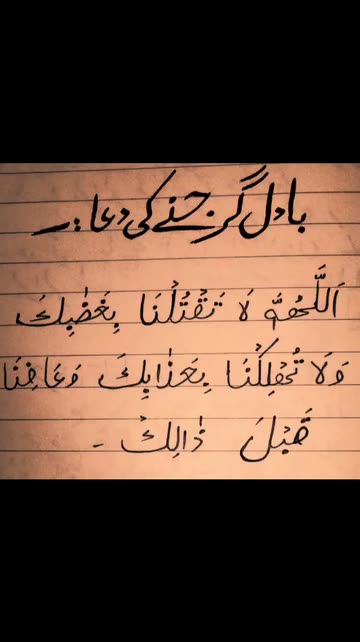 بادل گرجنے کی دعا:۔
اَللّٰهُمَّ لَا تَقْتُلْنَا بِغَضَبِكَ
وَلَا تُهْلِكْنَا بِعَذَابِكَ وَعَافِنَا
قَبْلَ ذَالِكَ ۔